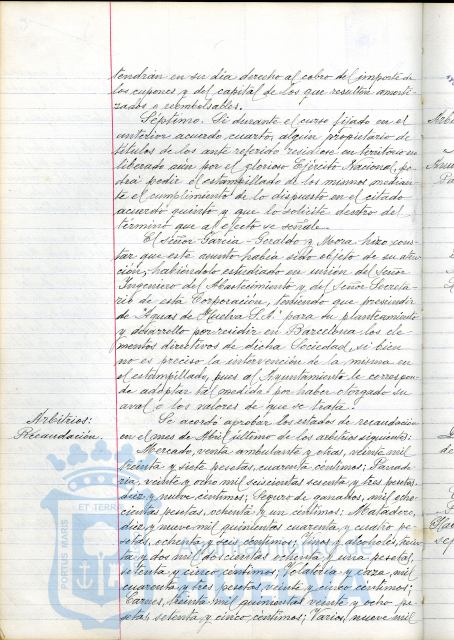 tendrán en su dia derecho al cobro del importe de
los cupones y del capital de los que resulten amorti-
zados y reembolsables.
Séptimo. Si durante el curso fijado en el
anterior acuerdo cuarto, algún propietario de
títulos de los ante referido residiese en territorio no
liberado aún por el glorioso Ejército Nacional, po-
drá pedir el estampillado de los mismos median-
te el cumplimiento de lo dispuesto en el citado
acuerdo quinto y que lo solicite dentro del
término que al efecto se señale.
El Señor Garcia-Geraldo y Mora hizo cons-
tar que este asunto habia sido objeto de su aten-
ción, habiéndolo estudiado en unión del Señor
Ingeniero del Abastecimiento y del Señor Secreta-
rio de esta Corporación, teniendo que prescindir
de "Aguas de Huelva S.A." para su planteamiento
y desarrollo por residir en Barcelona los ele-
mentos directivos de dicha Sociedad, si bien
no es preciso la intervención de la misma en
el estampillado, pues al Ayuntamiento le correspon-
de adoptar tal medida por haber otorgado su
aval a los valores de que se trata.
Arbitrios:
Recaudación.
Se acordó aprobar los estados de recaudación
en el mes de Abril último de los arbitrios siguientes:
Mercado, venta ambulante y otras, veinte mil
treinta y siete pesetas, cuarenta céntimos; Panade-
ria, veinte y ocho mil seiscientas sesenta y tres pesetas,
diez y nueve céntimos; Seguro de ganados, mil ocho-
cientas pesetas, ochenta y un céntimos; Matadero,
diez y nueve mil quinientas cuarenta y cuatro pe-
setas, ochenta y seis céntimos; Vinos y alcoholes, trein-
ta y dos mil doscientas ochenta y una pesetas,
setenta y cinco céntimos; Volateria y caza, mil
cuarenta y tres pesetas, veinte y cinco céntimos;
Carnes, treinta mil quinientas veinte y ocho pe-
setas, setenta y cinco céntimos; Varios, nueve mil
PORTUS MARIS
ET TERR